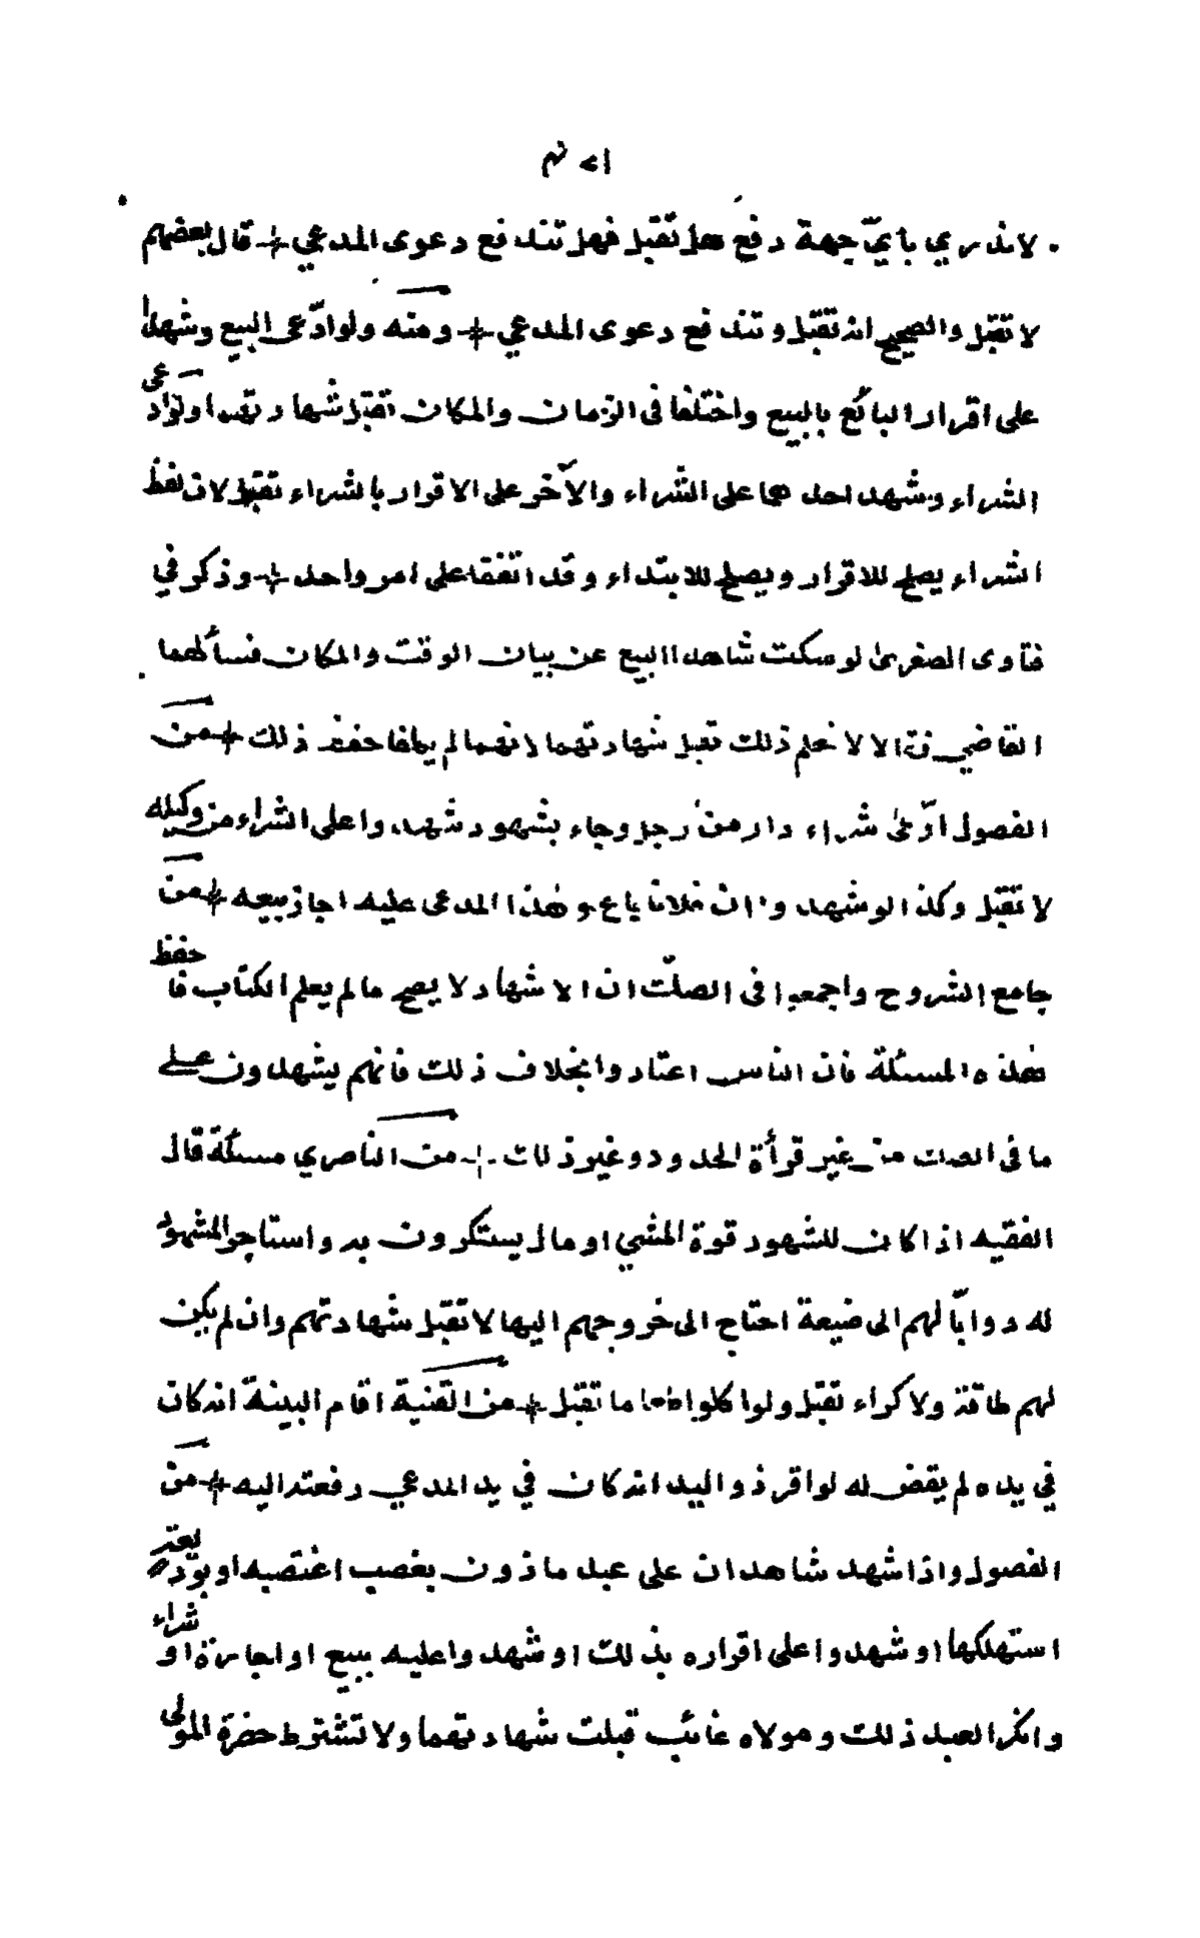 لا ندري بأيّ جهة دفع هل تقبل فهل تندفع دعوى المدعي قال بعضهم
لا تقبل والصحيح انه تقبل وتندفع دعوى المدعي ومنه ولو ادّعى البيع وشهدا
على اقرار البائع بالبيع واختلفا فى الزمان والمكان تقبل شهادتهما ولو ادّعى
الشراء وشهد احدهما على الشراء والآخر على الاقرار بالشراء تقبل لان لفظ
الشراء يصلح للاقرار ويصلح للابتداء وقد اتفقا على امر واحد وذكر في
فتاوى الصغرىٰ لو سكت شاهدا البيع عن بيان الوقت والمكان فسألهما
القاضي فقالا لا نعلم ذلك تقبل شهادتهما لانهما لم يكلفا حفظ ذلك من
الفصول ادّعىٰ شراء دار من رجل وجاء بشهود شهدوا على الشراء من وكيله
لا تقبل وكذا لو شهدوا ان فلانا باع وهٰذا المدعى عليه اجاز بيعه من
جامع الشروح واجمعوا فى الصكّ ان الاشهاد لا يصح مالم يعلم الكتاب فاحفظ
هٰذه المسئلة فان الناس اعتادوا بخلاف ذلك فانهم يشهدون على
ما فى الصك من غير قرأة الحدود وغير ذلك من الناصري مسئلة قال
الفقيه اذا كان للشهود قوة المشي او مال يستكرون به واستاجر المشهود
له دوابّا لهم الى ضيعة احتاج الى خروجهم اليها لا تقبل شهادتهم وان لم يكن
لهم طاقة ولا كراء تقبل ولو اكلوا طعاما تقبل من القنية اقام البينة انه كان
في يده لم يقض له لو اقر ذو اليد انه كان في يد المدعي دفعته اليه من
الفصول واذا شهد شاهدان على عبد ماذون بغصب اغتصبه او بوديعة
استهلكها او شهدوا على اقراره بذلك او شهدوا عليه ببيع او اجارة او شراء
وانكر العبد ذلك ومولاه غائب قبلت شهادتهما ولا تشترط حضرة المولى